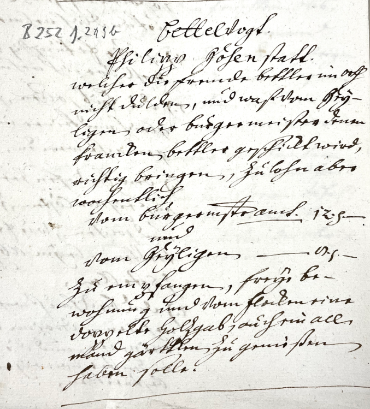 B 252 J. 2196
Bettelvogt.
Philipp Hösenstatt.
welcher die fremde bettler im orth
nicht dulden, und waß vom Hey-
ligen oder burgermeister denen
krancken bettler geschickt wird,
richtig bringen, zu lohn aber
wochentlich
vom burgermstramt. 12 x
und
vom Heyligen
Zu empfangen, freye be-
wohnung und vom flecken eine
doppelte holtzgab, auch ein all
mand gärttlen zu genießen
haben solle.